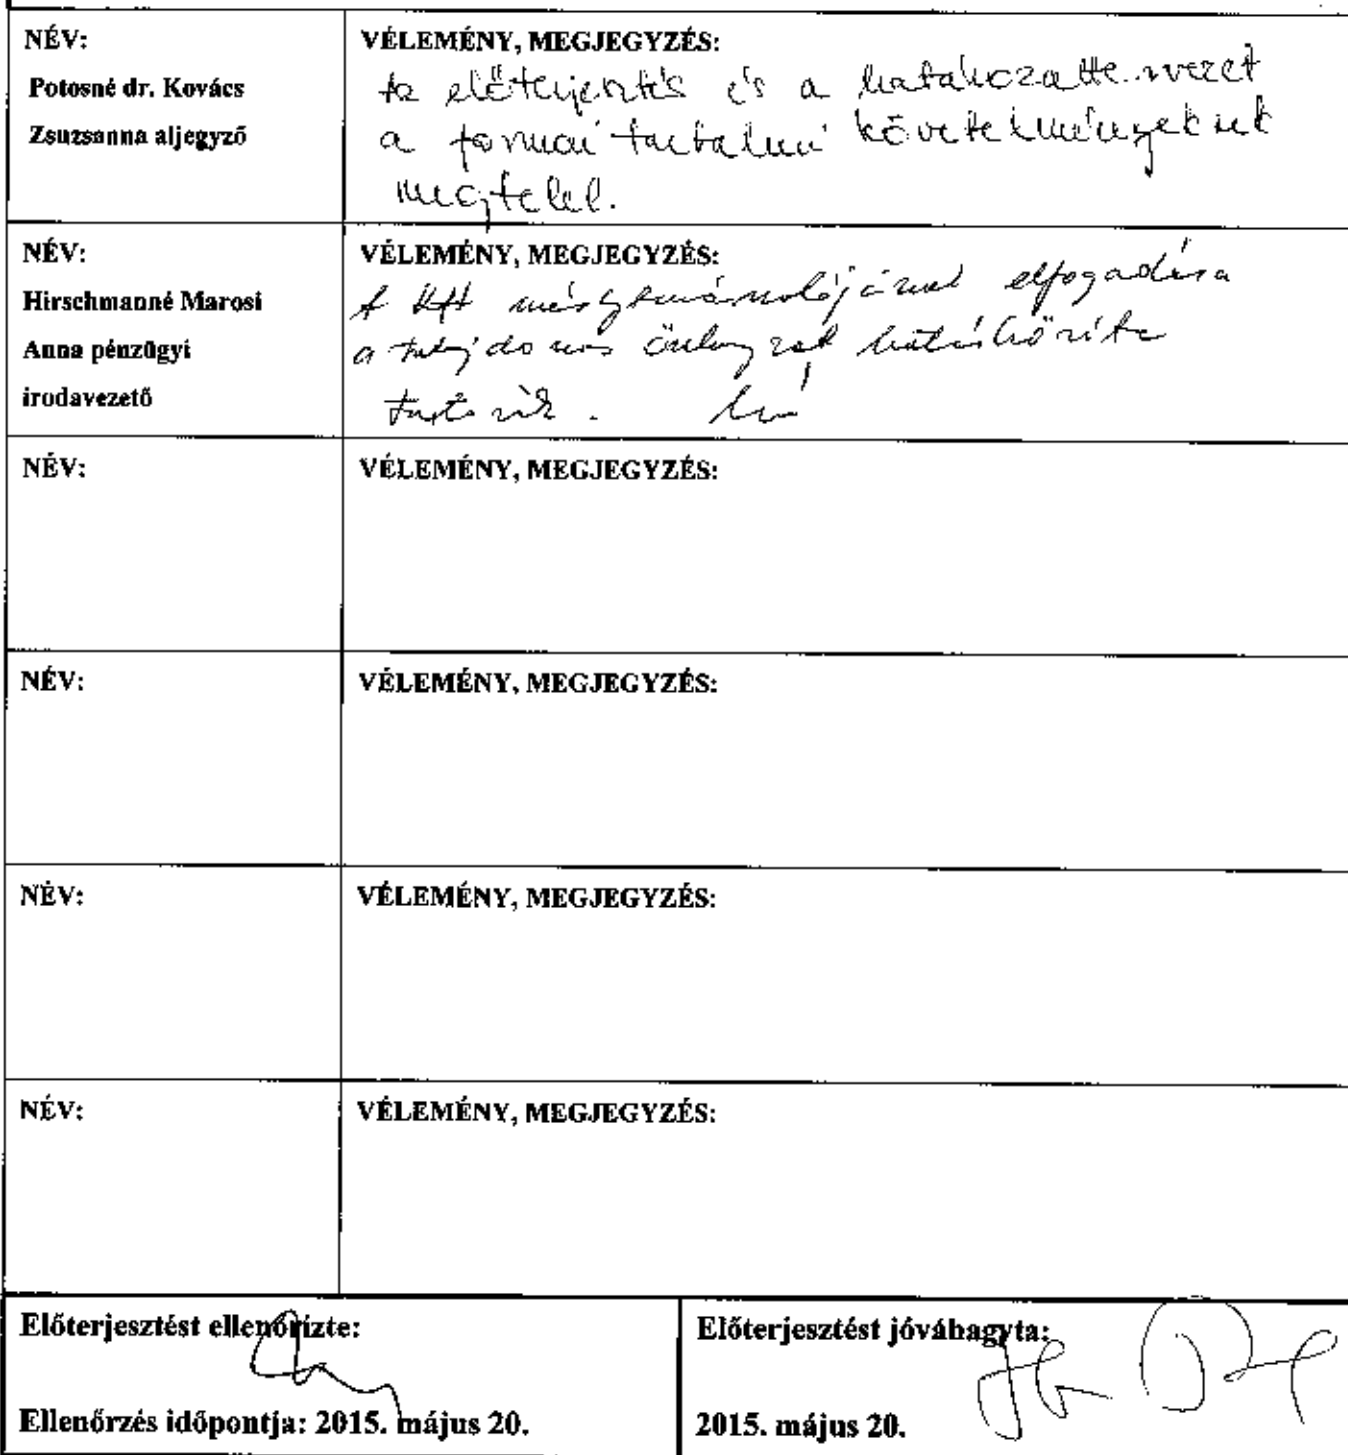 NÉV:
Potosné dr. Kovács
Zsuzsanna aljegyző
VÉLEMÉNY, MEGJEGYZÉS:
Az előterjesztés és a határozattervezet
a formai tartalmi követelményeknek
megfelel.
NÉV:
Hirschmanné Marosi
Anna pénzügyi
irodavezető
VÉLEMÉNY, MEGJEGYZÉS:
A Kft elfogadása
a tulajdonos önkormányzat hatáskörébe
tartozik.
NÉV:
VÉLEMÉNY, MEGJEGYZÉS:
NÉV:
VÉLEMÉNY, MEGJEGYZÉS:
NÉV:
VÉLEMÉNY, MEGJEGYZÉS:
NÉV:
VÉLEMÉNY, MEGJEGYZÉS:
Előterjesztést ellenőrizte:
Ellenőrzés időpontja: 2015. május 20.
Előterjesztést jóváhagyta:
2015. május 20.